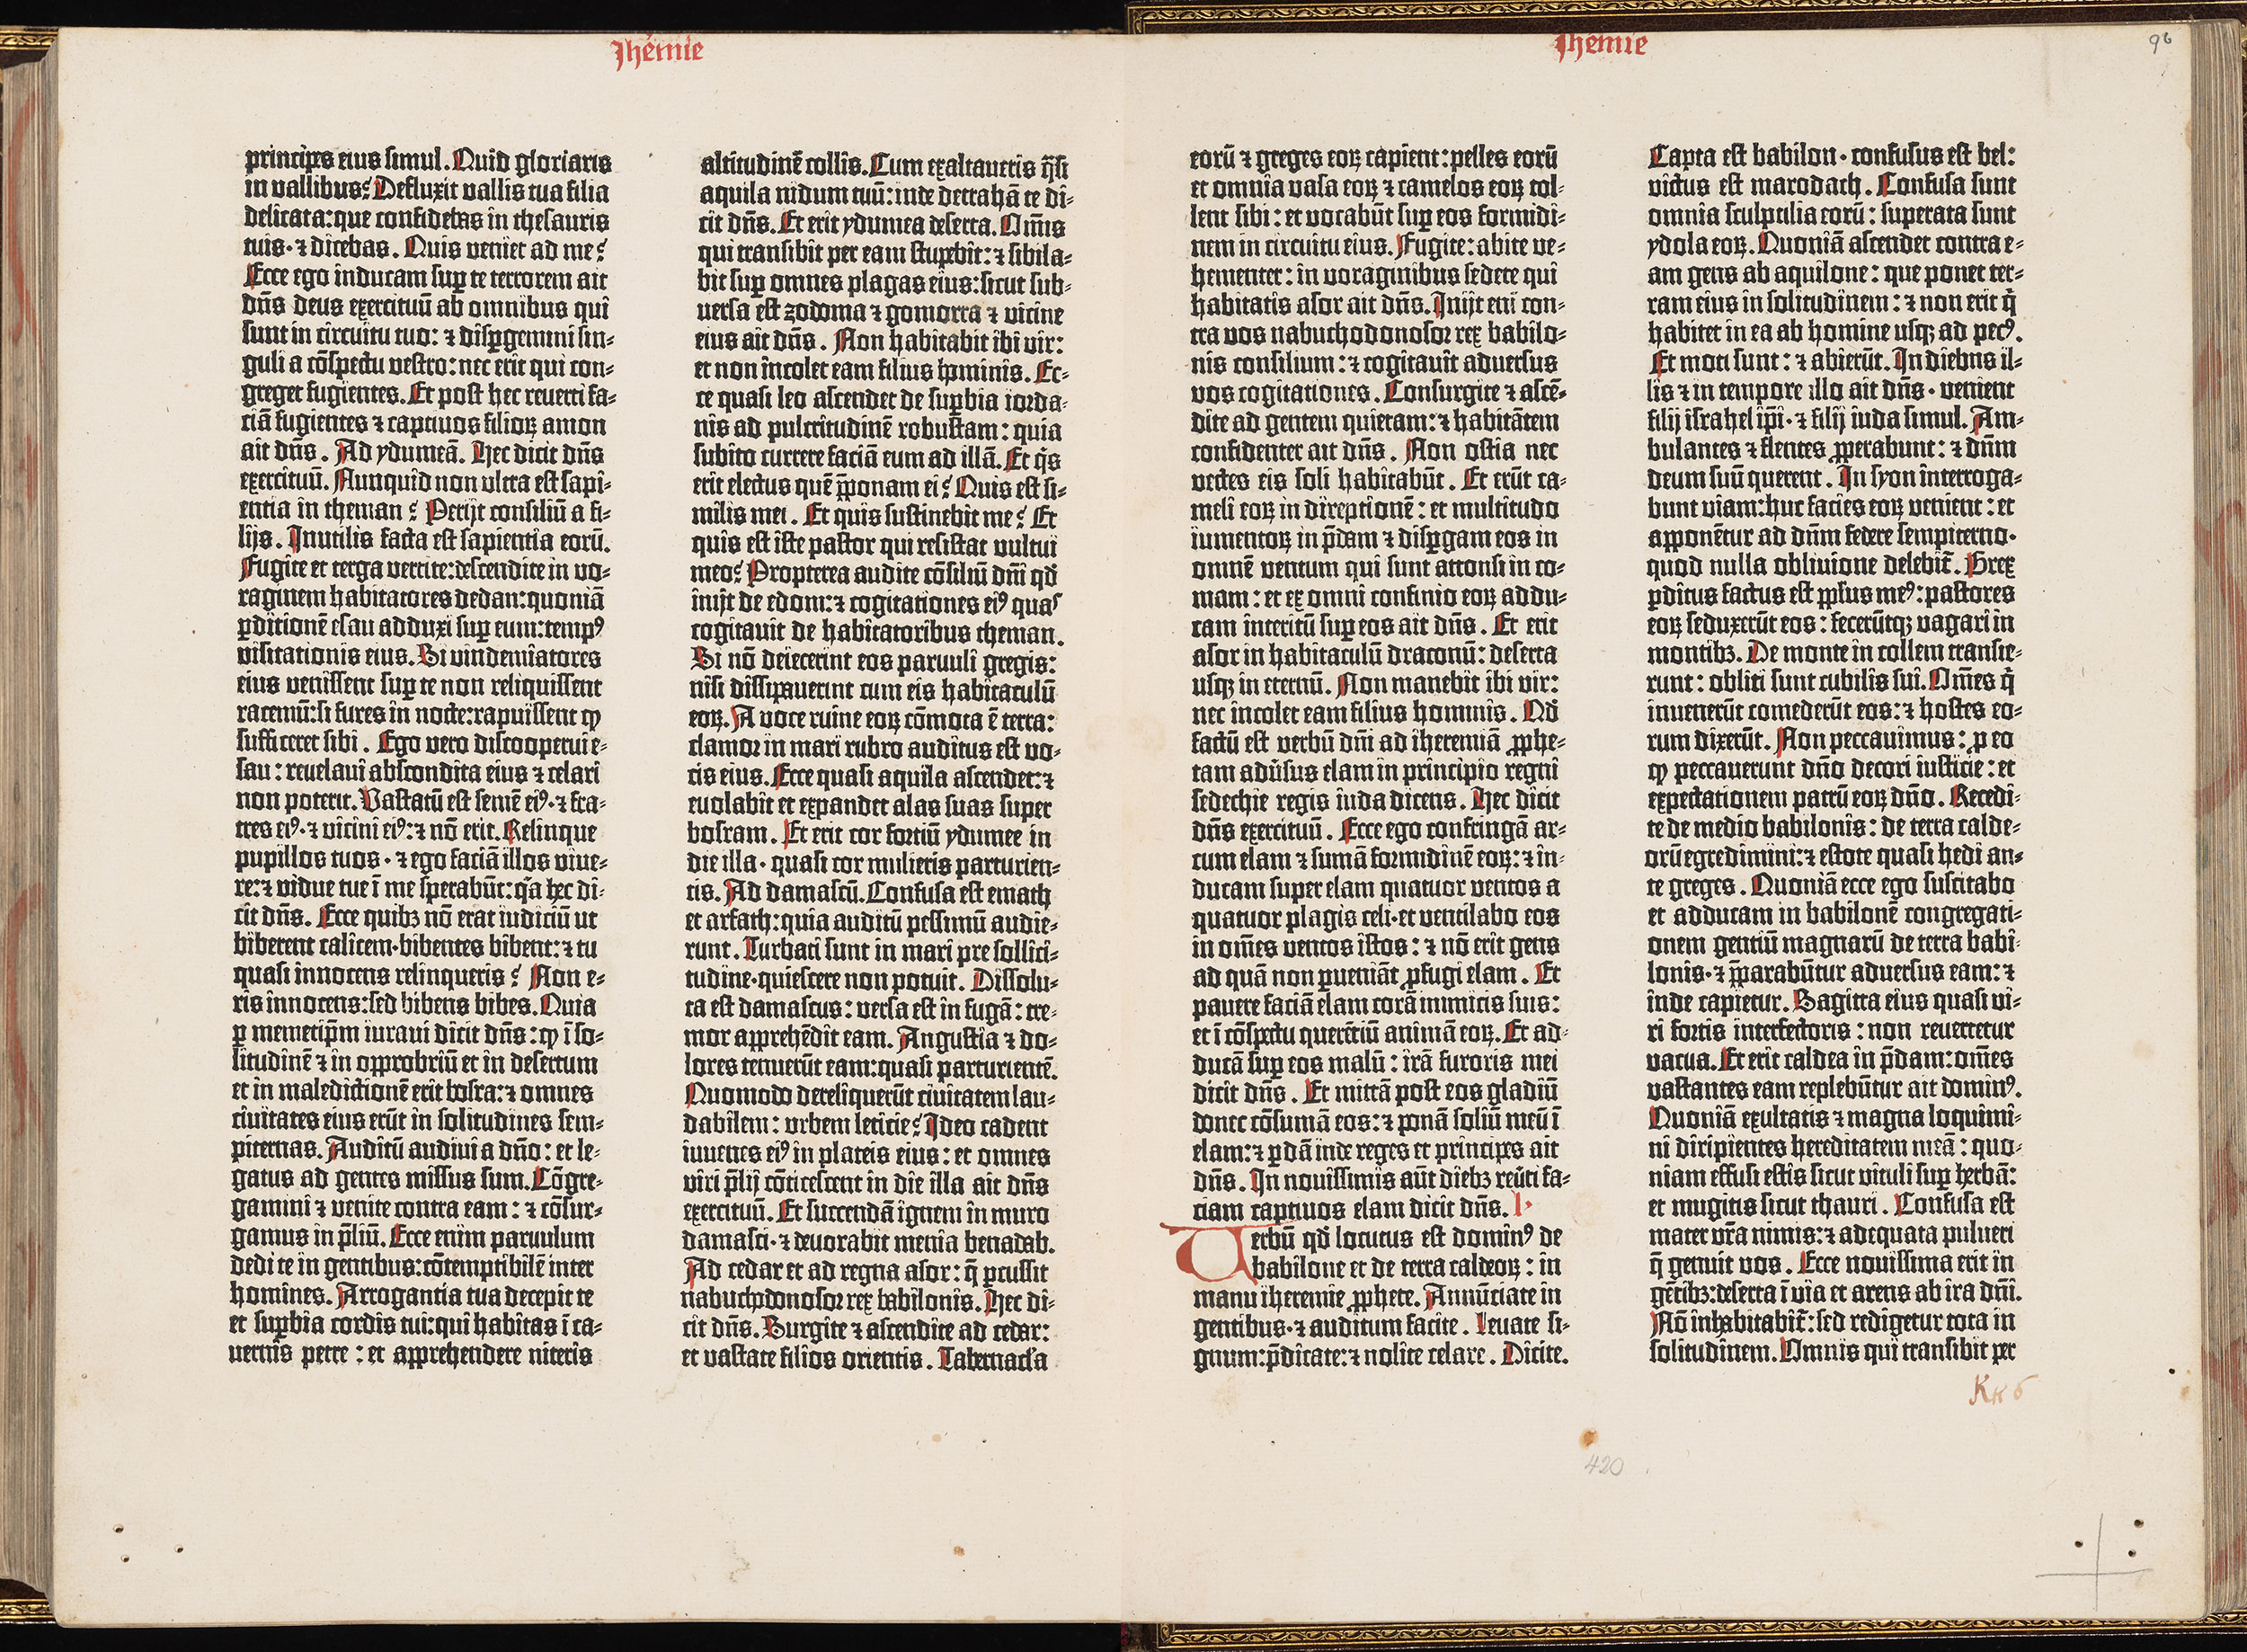 Jheremie
principes eius simul. Quid gloriaris
in vallibus? Defluxit vallis tua filia
delicata: que confidebas in thesauris
tuis· ⁊ dicebas. Quis veniet ad me?
Ecce ego inducam sup̱ te terrorem ait
dn̄s deus exercituū ab omnibus qui
sunt in circuitu tuo: ⁊ disp̱gemini sin-
guli a cōspectu vestro: nec erit qui con-
greget fugientes. Et post hec reuerti fa-
ciā fugientes ⁊ captiuos filioꝝ amon
ait dn̄s. Ad ydumeā. Hec dicit dn̄s
exercituū. Nunquid non vltra est sapi-
entia in theman? Perijt consiliū a fi-
lijs. Inutilis facta est sapientia eorū.
Fugite et terga vertite: descendite in vo-
raginem habitatores dedan: quoniā
ꝑditionē esau adduxi suꝑ eum: tempꝰ
visitationis eius. Si vindemiatores
eius venissent suꝑ te non reliquissent
racemū: si fures in nocte: rapuissent ꝙ
sufficeret sibi. Ego vero discooperui e-
sau: reuelaui abscondita eius ⁊ celari
non poterit. Vastatū est semē eiꝰ· ⁊ fra-
tres eiꝰ· ⁊ vicini eiꝰ: ⁊ nō erit. Relinque
pupillos tuos· ⁊ ego faciā illos viue-
re: ⁊ vidue tue ī me sperabūt: qͣa hec di-
cit dn̄s. Ecce quibꝫ nō erat iudiciū ut
biberent calicem· bibentes bibent: ⁊ tu
quasi innocens relinqueris? Non e-
ris innocens: sed bibens bibes. Quia
ꝑ memetip̄m iuraui dicit dn̄s: ꝙ ī so-
litudinē ⁊ in opprobriū et in desertum
et in maledictionē erit bosra: ⁊ omnes
ciuitates eius erūt in solitudines sem-
piternas. Auditū audiui a dn̄o: et le-
gatus ad gentes missus sum. Cōgre-
gamini ⁊ venite contra eam: ⁊ cōsur-
gamus in p̄liū. Ecce enim paruulum
dedi te in gentibus: cōtemptibilē inter
homines. Arrogantia tua decepit te
et suꝑbia cordis tui: qui habitas ī ca-
uernis petre: et apprehendere niteris
altitudinē collis. Cum exaltaueris q̄si
aquila nidum tuū: inde detrahā te di-
cit dn̄s. Et erit ydumea deserta. Om̄is
qui transibit per eam stupebit: ⁊ sibila-
bit suꝑ omnes plagas eius: sicut sub-
uersa est zodoma ⁊ gomorra ⁊ vicine
eius ait dn̄s. Non habitabit ibi vir:
et non incolet eam filius hominis. Ec-
ce quasi leo ascendet de suꝑbia iorda-
nis ad pulcritudinē robustam: quia
subito currere faciā eum ad illā. Et qͥs
erit electus quē p̄ponam ei? Quis est si-
milis mei. Et quis sustinebit me? Et
quis est iste pastor qui resistat vultui
meo? Propterea audite cōsiliū dn̄i qd̓
inijt de edom: ⁊ cogitationes eiꝰ quas
cogitauit de habitatoribus theman.
Si nō deiecerint eos paruuli gregis:
nisi dissipauerint cum eis habitaculū
eoꝝ. A voce ruine eoꝝ cōmota ē terra:
clamor in mari rubro auditus est vo-
cis eius. Ecce quasi aquila ascendet: ⁊
euolabit et expandet alas suas super
bosram. Et erit cor fortiū ydumee in
die illa· quasi cor mulieris parturien-
tis. Ad damascū. Confusa est emath
et arfath: quia auditū pessimū audie-
runt. Turbati sunt in mari pre sollici-
tudine· quiescere non potuit. Dissolu-
ta est damascus: versa est in fugā: tre-
mor apprehēdit eam. Angustia ⁊ do-
lores tenuerūt eam: quasi parturientē.
Quomodo dereliquerūt ciuitatem lau-
dabilem: vrbem leticie? Ideo cadent
iuuenes eiꝰ in plateis eius: et omnes
viri p̄lij cōticescent in die illa ait dn̄s
exercituū. Et succendā ignem in muro
damasci· ⁊ deuorabit menia benadab.
Ad cedar et ad regna asor: q̄ ꝑcussit
nabuchodonosor rex babilonis. Hec di-
cit dn̄s. Surgite ⁊ ascendite ad cedar:
et vastate filios orientis. Tabernacl̓a
Jheremie
96
eorū ⁊ greges eoꝝ capient: pelles eorū
et omnia vasa eoꝝ ⁊ camelos eoꝝ tol-
lent sibi: et vocabūt suꝑ eos formidi-
nem in circuitu eius. Fugite: abite ve-
hementer: in voraginibus sedete qui
habitatis asor ait dn̄s. Inijt eni con-
tra vos nabuchodonosor rex babilo-
nis consilium: ⁊ cogitauit aduersus
vos cogitationes. Consurgite ⁊ ascē-
dite ad gentem quietam: ⁊ habitātem
confidenter ait dn̄s. Non ostia nec
vectes eis soli habitabūt. Et erūt ca-
meli eoꝝ in direptionē: et multitudo
iumentoꝝ in p̄dam ⁊ disꝑgam eos in
omnē ventum qui sunt attonsi in co-
mam: et ex omni confinio eoꝝ addu-
cam interitū suꝑ eos ait dn̄s. Et erit
asor in habitaculū draconū: deserta
usqꝫ in eternū. Non manebit ibi vir:
nec incolet eam filius hominis. Qd̓
factū est verbū dn̄i ad iheremiā ꝓphe-
tam adūsus elam in principio regni
sedechie regis iuda dicens. Hec dicit
dn̄s exercituū. Ecce ego confringā ar-
cum elam ⁊ sumā formidinē eoꝝ: ⁊ in-
ducam super elam quatuor ventos a
quatuor plagis celi· et ventilabo eos
in om̄es ventos istos: ⁊ nō erit gens
ad quā non ꝑueniāt ꝓfugi elam. Et
pauere faciā elam corā inimicis suis:
et ī cōspectu querētiū animā eoꝝ. Et ad-
ducā suꝑ eos malū: irā furoris mei
dicit dn̄s. Et mittā post eos gladiū
donec cōsumā eos: ⁊ ponā soliū meū ī
elam: ⁊ ꝑdā inde reges et principes ait
dn̄s. In nouissimis aūt diebꝫ reūti fa-
ciam captiuos elam dicit dn̄s. l·
Verbū qd̓ locutus est dominꝰ de
babilone et de terra caldeoꝝ: in
manu iheremie ꝓphete. Annūciate in
gentibus· ⁊ auditum facite. Leuate si-
gnum: p̄dicate: ⁊ nolite celare. Dicite.
Capta est babilon· confusus est bel:
victus est marodach. Confusa sunt
omnia sculptilia eorū: superata sunt
ydola eoꝝ. Quoniā ascendet contra e-
am gens ab aquilone: que ponet ter-
ram eius in solitudinem: ⁊ non erit qͥ
habitet in ea ab homine usqꝫ ad pecꝰ.
Et moti sunt: ⁊ abierūt. In diebus il-
lis ⁊ in tempore illo ait dn̄s· venient
filij israhel ip̄i· ⁊ filij iuda simul. Am-
bulantes ⁊ flentes ꝓperabunt: ⁊ dn̄m
deum suū querent. In syon interroga-
bunt viam: huc facies eoꝝ venient: et
apponētur ad dn̄m federe sempiterno·
quod nulla obliuione delebit̄. Grex
ꝑditus factus est ꝓplus meꝰ: pastores
eoꝝ seduxerūt eos: fecerūtqꝫ vagari in
montibꝫ. De monte in collem transie-
runt: obliti sunt cubilis sui. Om̄es qͥ
inuenerūt comederūt eos: ⁊ hostes eo-
rum dixerūt. Non peccauimus: ꝓ eo
ꝙ peccauerunt dn̄o decori iusticie: et
expectationem patrū eoꝝ dn̄o. Recedi-
te de medio babilonis: de terra calde-
orū egredimini: ⁊ estote quasi hedi an-
te greges. Quoniā ecce ego suscitabo
et adducam in babilonē congregati-
onem gentiū magnarū de terra babi-
lonis· ⁊ p̄parabūtur aduersus eam: ⁊
inde capietur. Sagitta eius quasi vi-
ri fortis interfectoris: non reuertetur
vacua. Et erit caldea in p̄dam: om̄es
vastantes eam replebūtur ait dominꝰ.
Quoniā exultatis ⁊ magna loquimi-
ni diripientes hereditatem meā: quo-
niam effusi estis sicut vituli suꝑ herbā:
et mugitis sicut thauri. Confusa est
mater vr̄a nimis: ⁊ adequata pulueri
q̄ genuit vos. Ecce nouissima erit in
gētibꝫ: deserta ī via et arens ab ira dn̄i.
Nō inhabitabit̄: sed redigetur tota in
solitudinem. Omnis qui transibit per
Kk 6
420